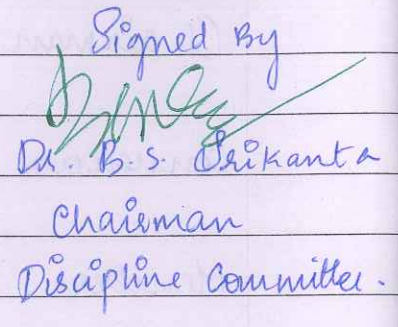 Signed By
Dr. B.S. Srikanta
Chairman
Discipline Committee.